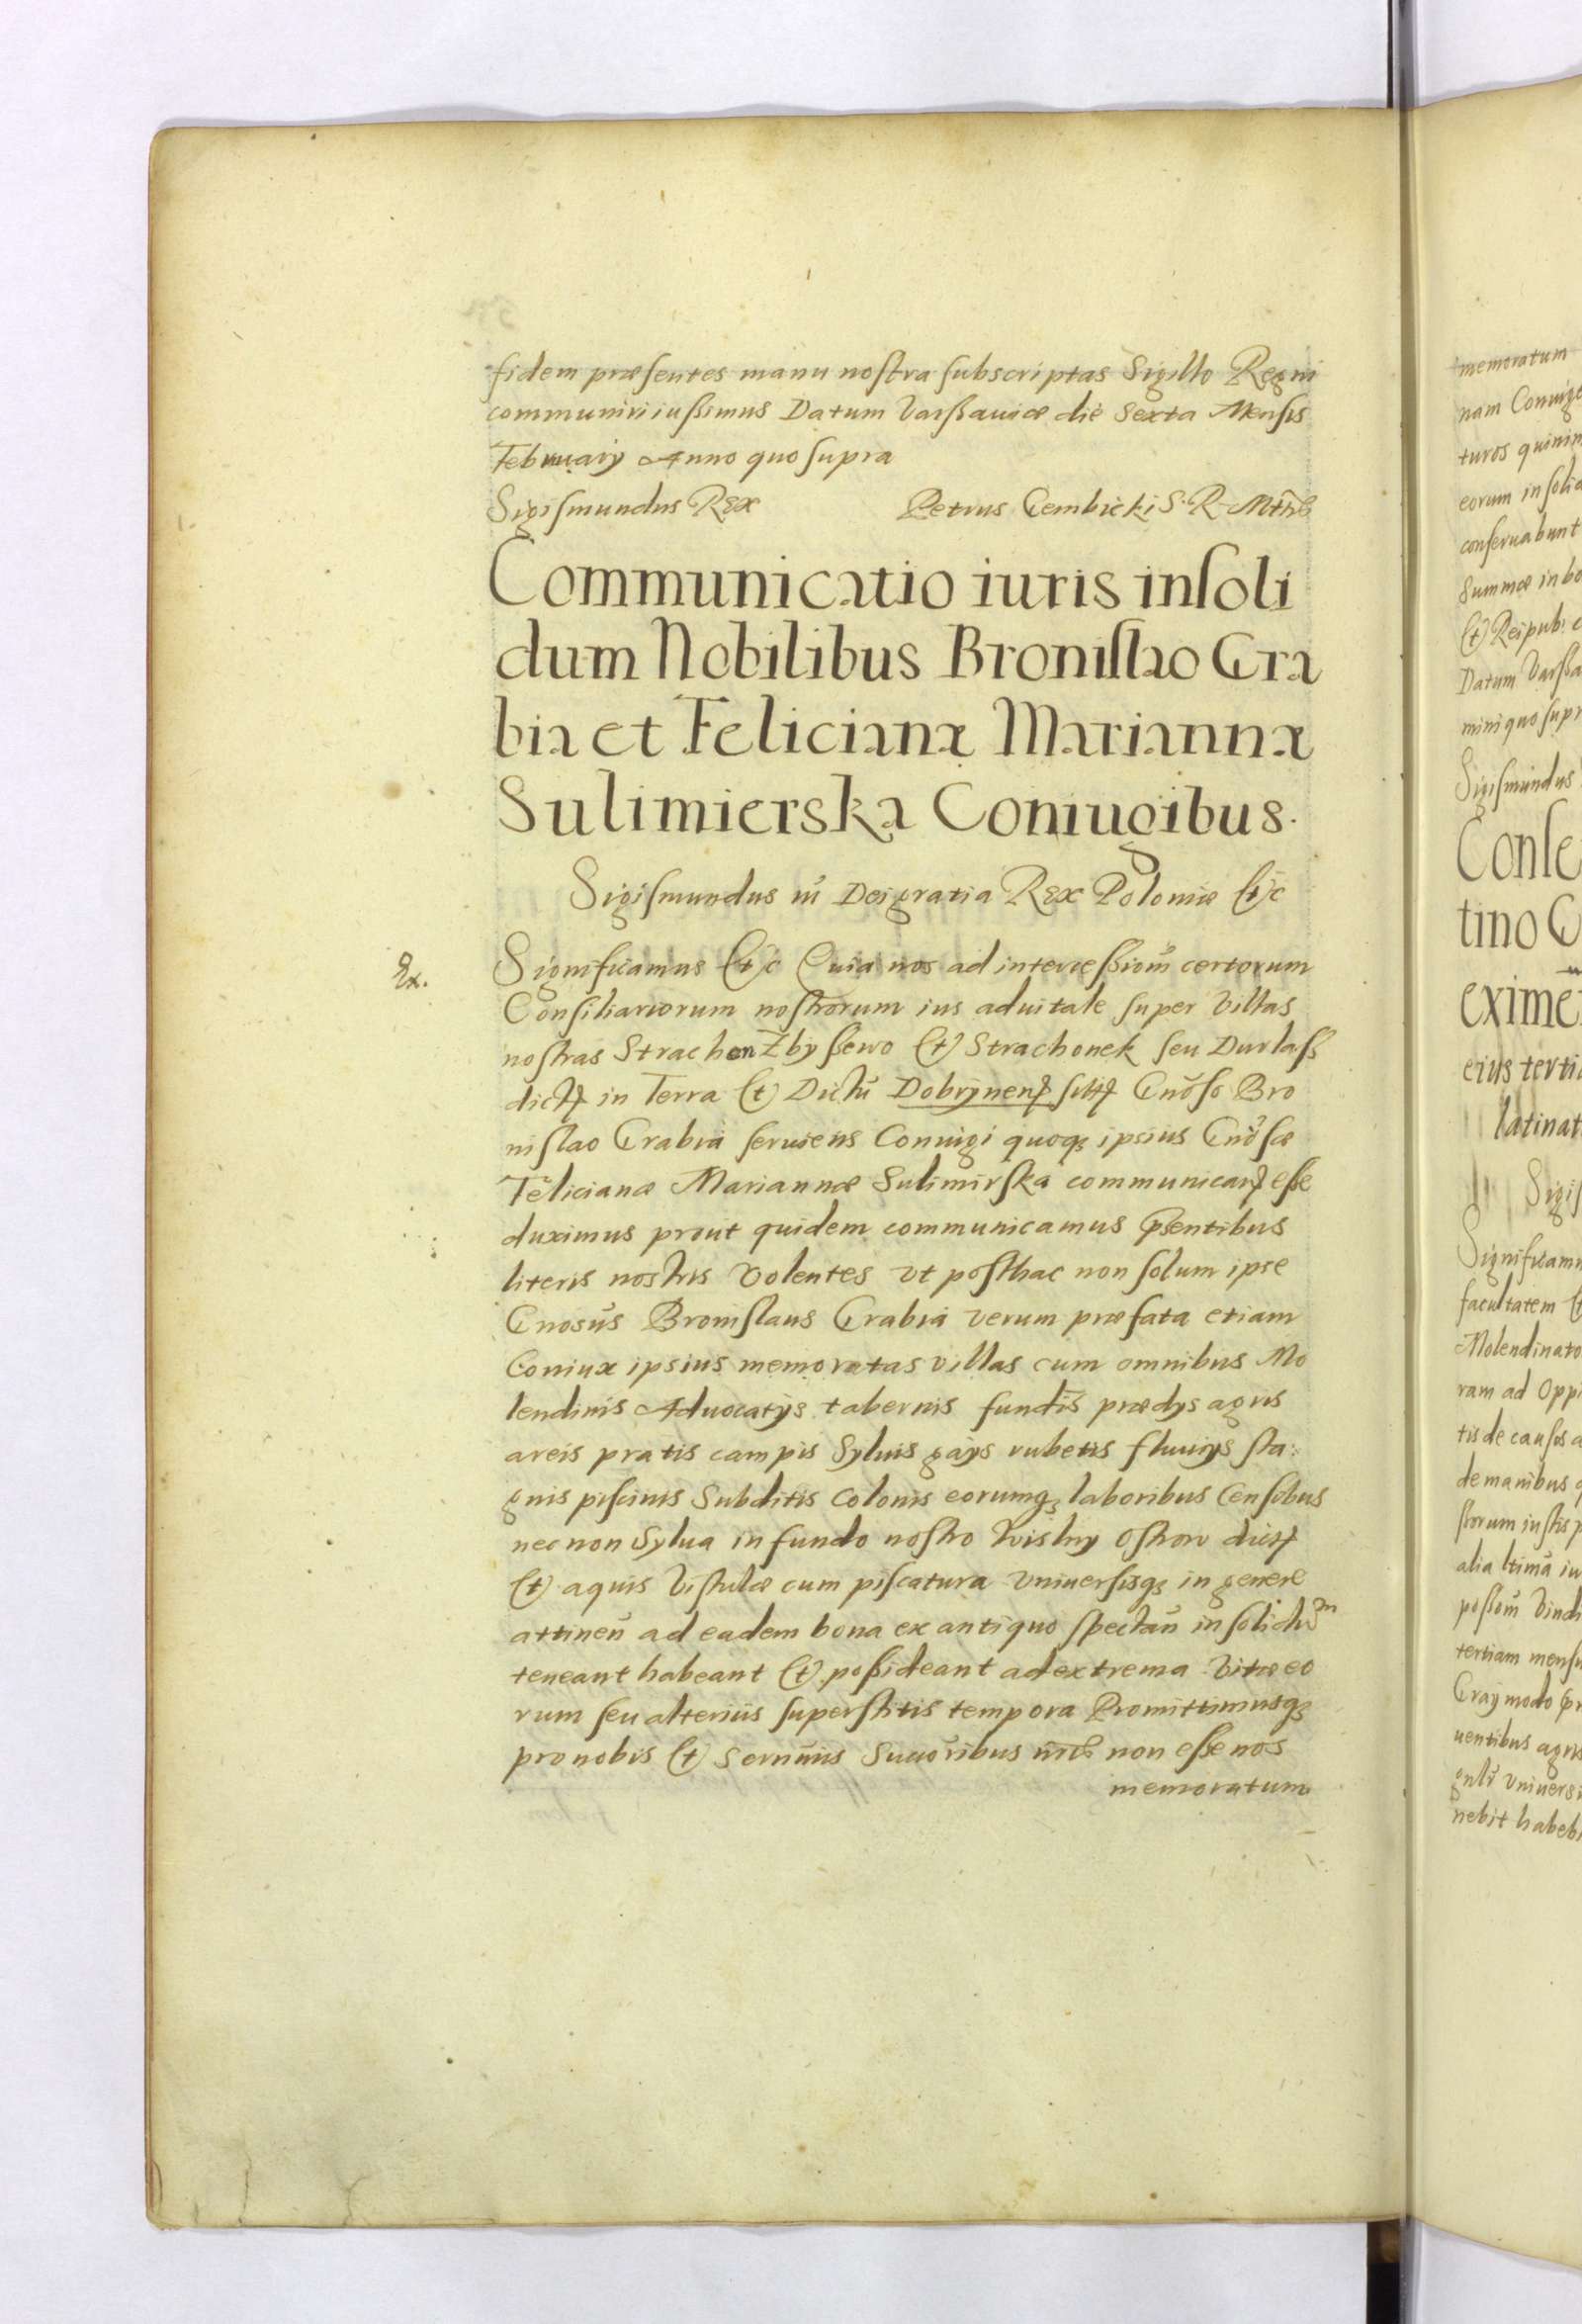 fidem præsentes manu nostra subscriptas Sigillo Regni
communiri iussimus Datum Varssauiæ die Sexta Mensis
February Anno quo supra
Sigismundus Rex Petrus Gembicki S. R.
Communicatio iuris insoli
dum Nobilibus Bronislao Gra
bia et Felicianæ Mariannæ
Sulimierska Coniugibus.
Sigismundus iii Dei gratia Rex Poloniæ Etc
Ex.
Significamus Etc Quia nos ad intercessiom̄ certorum
Consiliariorum nostrorum ius aduitale super Villas
nostras Strachon Zbyssewo Et Strachonek seu Durlass
dict in Terra Et Dictu Dobrynen sitis Gnōso Bro
nislao Grabia seruiens Coniugi quoqꝫ ipsius Gnōsæ
Felicianæ Mariannæ Sulimirska communican esse
duximus prout quidem communicamus pn̄sentibus
literis nostris Volentes Vt posthac non solum ipse
Gnosus Bronislaus Grabia verum præfata etiam
Coniux ipsius memoratas villas cum omnibus Mo
lendinis Aduocatijs tabernis fundis prædys agris
areis pratis campis Syluis gays rubetis fluuijs sta:
gnis piscinis Subditis Colonis eorumqꝫ laboribus Censibus
nec non Sylua in fundo nostro Wislny Ostrow dict
Et aquis Vistulæ cum piscatura Vniuersisqꝫ in genere
attineñ ad eadem bona ex antiquo spectañ in solidum
teneant habeant Et possideant ad extrema Vitæ eo
rum seu alterius superstitis tempora Promittimusqꝫ
pro nobis Et Sernm̄is Succoribus nr̄is non esse nos
memoratum
memoratum
nam Coniuge
turos quinim
eorum in solid
conseruabunt
Summæ in bo
Et Reipub: c
Datum Varssa
mini quo supr
Sigismundus
Conse
tino G
exime
eius tertia
latinat
Sigis
Significamu
facultatem E
Molendinato
ram ad Oppi
tis de causis a
de manibus q
strorum iustis p
alia ltima iu
possom̄ Vindi
tertiam mensu
Gray modo pr
uentibus agris
gnlr Vniuersi
nebit habebi